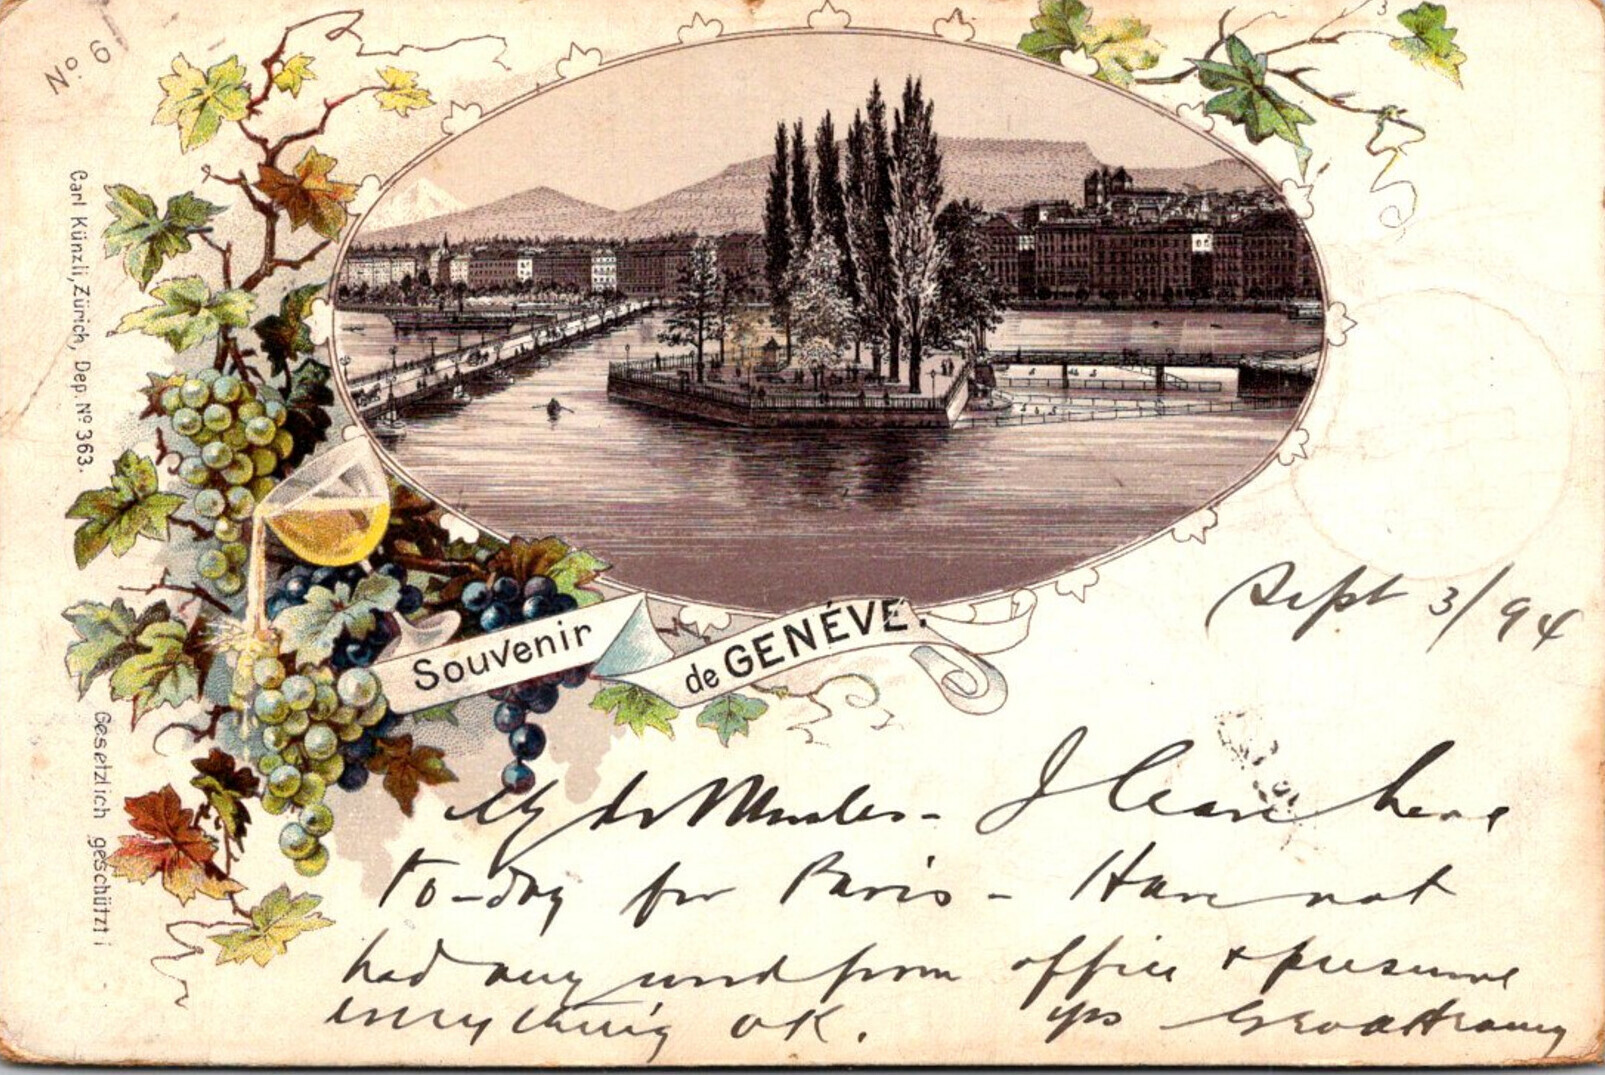 No. 6
Carl Künzli, Zürich, Dep. No 363.
Gesetzlich geschützt
Souvenir
de GENÉVE.
Sept 3/94
My dr - I leave here
to-day for Paris - Have not
had any word from office + presume
everything OK. yrs